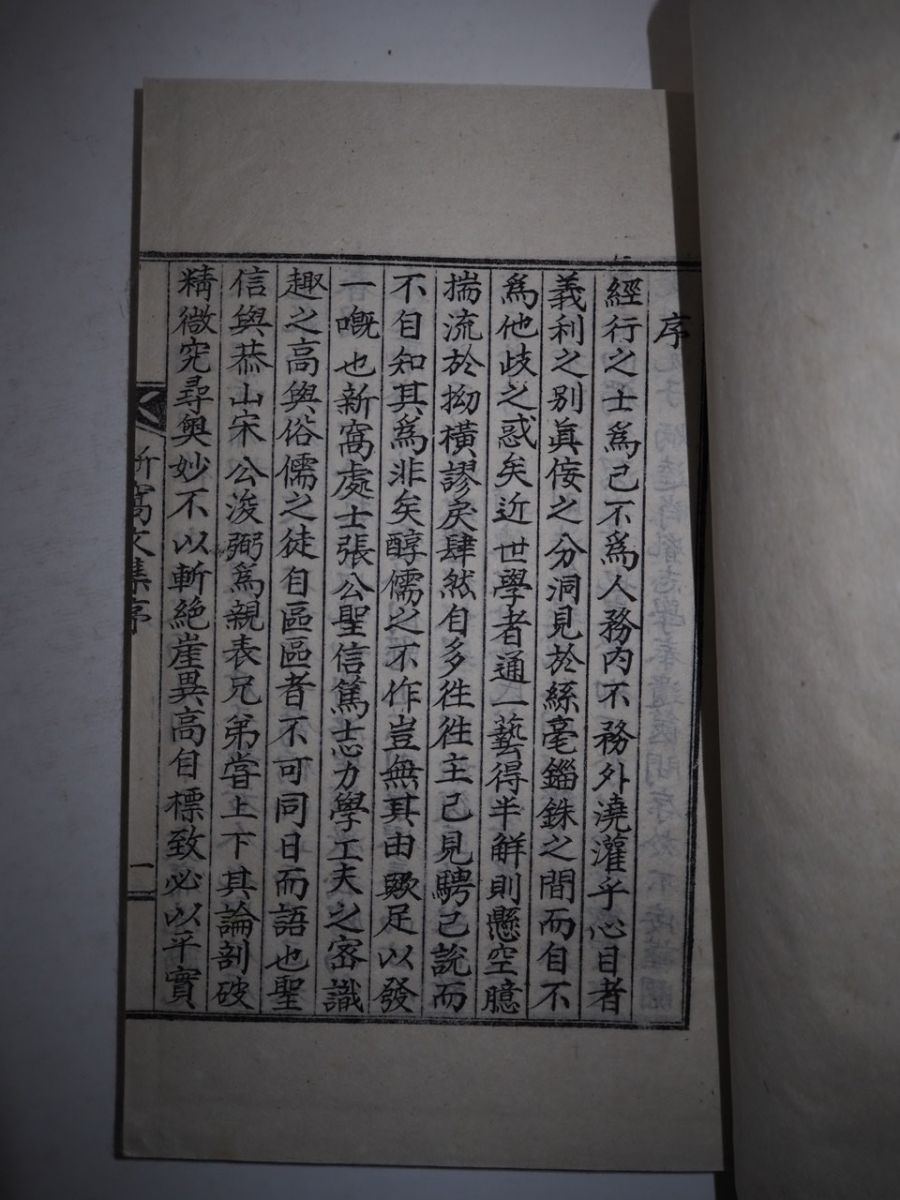 序
經行之士爲己不爲人務內不務外澆灌乎心目者
義利之别眞侫之分洞見於絲毫錙銖之間而自不
爲他歧之惑矣近世學者通一藝得半觧則懸空臆
揣流於拗橫謬戾肆然自多徃徃主己見騁己說而
不自知其爲非矣醇儒之不作豈無其由歟足以發
一嘅也新窩處士張公聖信篤志力學工夫之密識
趣之高與俗儒之徒自區區者不可同日而語也聖
信與恭山宋公浚弼爲親表兄弟嘗上下其論剖破
精微究尋奥妙不以斬絶崖異高自標致必以平實
新窩文集序
一